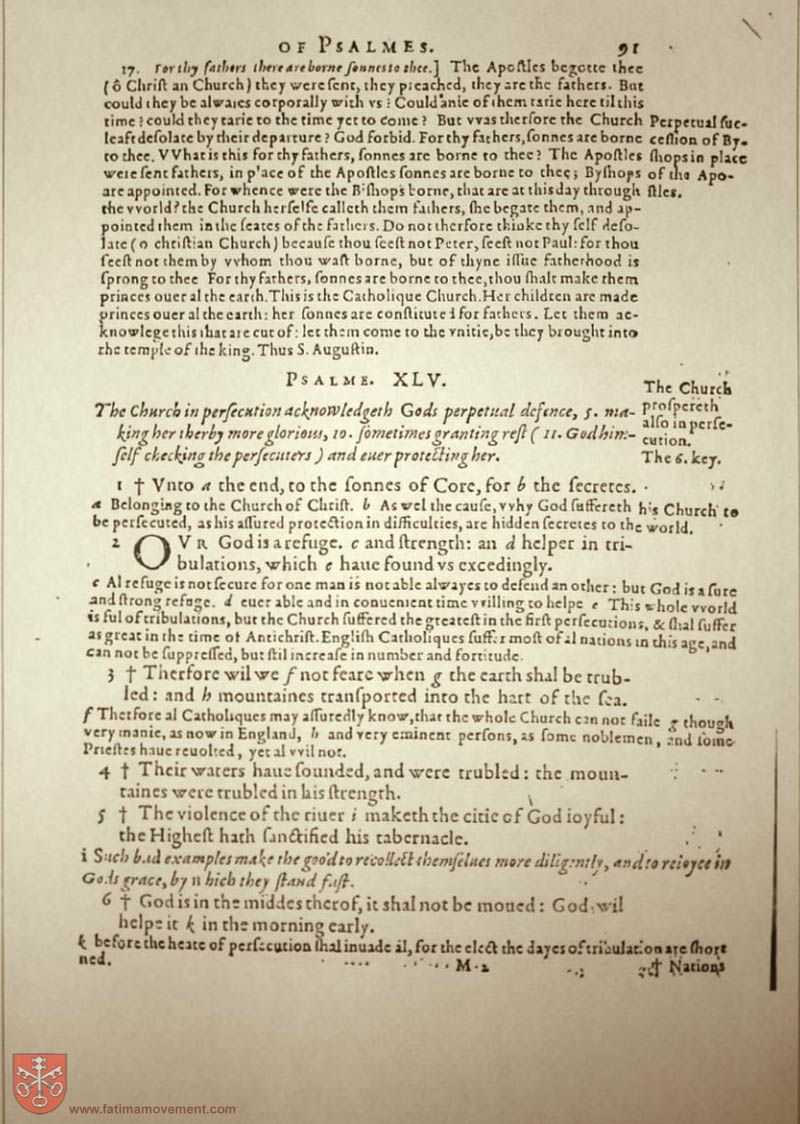 OF PSALMES. 91
17. For thy fathers there are borne sonnes to thee.] The Apostles begotte thee
(ô Christian Church) they were sent, they preached, they are the fathers. But
could they be alwaies corporally with vs? Could anie of them tarie here til this
time? could they tarie to the time yet to come? But vvas therfore the Church
least desolate by their departure? God forbid. For thy fathers, sonnes are borne
to thee. VVhat is this for thy fathers, sonnes are borne to thee? The Apostles
were sent fathers, in place of the Apostles sonnes are borne to thee; Byshops
are appointed. For whence were the Bishops borne, that are at this day through
the vvorld? the Church herselfe calleth them fathers, she begate them, and ap-
pointed them in the seates of the fathers. Do not therfore thinke thy self deso-
late (o christian Church) because thou seest not Peter, seest not Paul: for thou
seest not them by vvhom thou wast borne, but of thyne issue fatherhood is
sprong to thee For thy fathers, sonnes are borne to thee, thou shalt make them
princes ouer al the earth. This is the Catholique Church. Her children are made
princes ouer al the earth: her sonnes are constituted for fathers. Let them ac-
knowlege this that are cut of: let them come to the vnitie, be they brought into
the temple of the king. Thus S. Augustin.
Perpetual suc-
cession of By-
shops in place
of the Apo-
stles.
PSALME. XLV.
The Church in persecution acknowledgeth Gods perpetual defence, 5. ma-
king her therby more glorious, 10. sometimes granting rest (11. God him-
self checking the persecuters) and euer protecting her.
The Church
prospereth
also in perse-
cution.
The 6. key.
1 † Vnto a the end, to the sonnes of Core, for b the secretes.
a Belonging to the Church of Christ. b As wel the cause, vvhy God suffereth his Church to
be persecuted, as his assured protection in difficulties, are hidden secretes to the world.
2 OVR God is a refuge. c and strength: an d helper in tri-
bulations, which e haue found vs excedingly.
c Al refuge is not secure for one man is not able alwayes to defend an other: but God is a sure
and strong refuge. d euer able and in conuenient time vvilling to helpe e This whole vvorld
is ful of tribulations, but the Church suffered the greatest in the first persecutions, & shal suffer
as great in the time of Antichrist. English Catholiques suffer most of al nations in this age, and
can not be suppressed, but stil increase in number and fortitude.
3 † Therfore wil we f not feare when g the earth shal be trub-
led: and h mountaines transported into the hart of the sea.
f Therfore al Catholiques may assuredly know, that the whole Church can not faile g though
very manie, as now in England, h and very eminent persons, as some noblemen, and some
Priestes haue reuolted, yet al vvil not.
4 † Their waters haue sounded, and were trubled: the moun-
taines were trubled in his strength.
5 † The violence of the riuer i maketh the citie of God ioyful:
the Highest hath sanctified his tabernacle.
i Such bad examples make the good to recollect themselues more diligently, and to reioyce in
Gods grace, by which they stand fast.
6 † God is in the middes therof, it shal not be moued: God wil
helpe it k in the morning early.
k before the heate of persecution shal inuade al, for the elect the dayes of tribulation are short
ned.
M 2 † Nations
www.fatimamovement.com